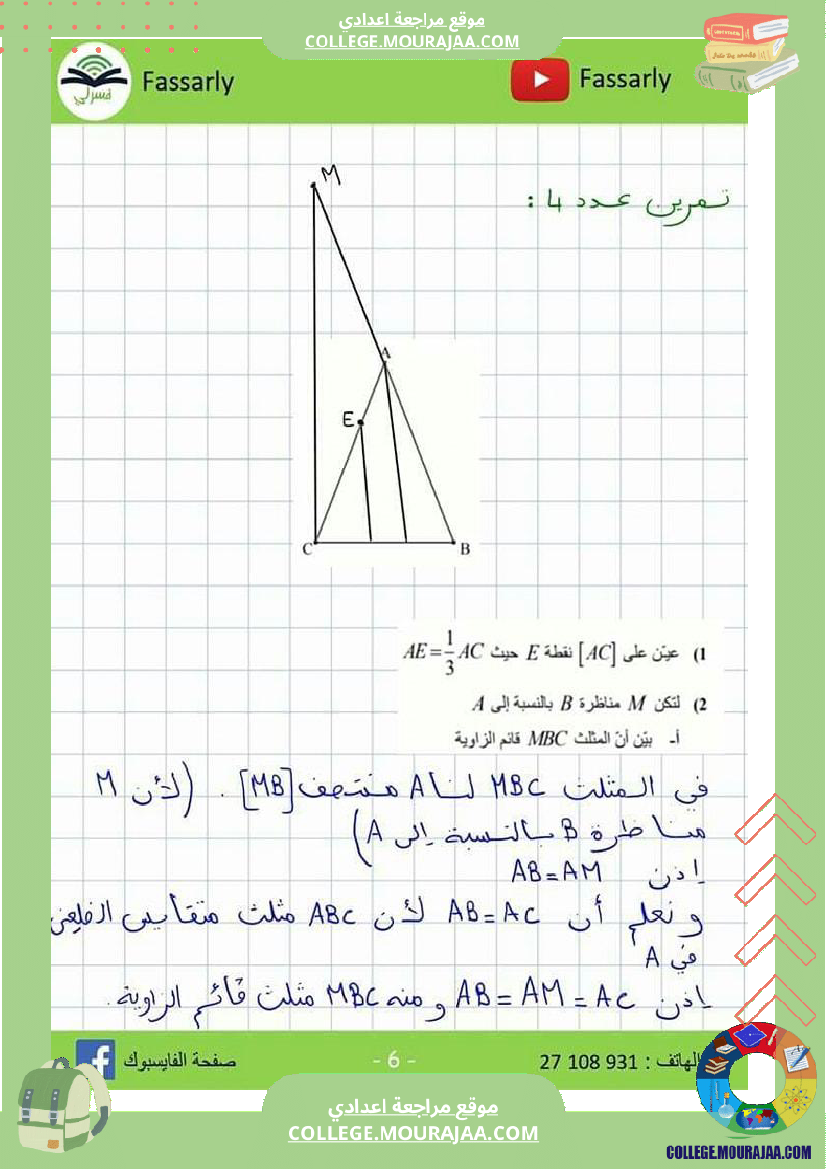 موقع مراجعة اعدادي
COLLEGE.MOURAJAA.COM
فسرلي
Fassarly
Fassarly
تمرين عدد 4 :
M
A
E
C
B
1) عيّن على [AC] نقطة E حيث AE = 1/3 AC
2) لتكن M مناظرة B بالنسبة إلى A
أ- بيّن أنّ المثلث MBC قائم الزاوية
في المثلث MBC لنا A منتصف [MB] . (لأن M
مناظرة B بالنسبة إلى A)
إذن AB = AM
و نعلم أن AB = AC لأن ABC مثلث متقايس الضلعين
في A
إذن AB = AM = AC و منه MBC مثلث قائم الزاوية.
صفحة الفايسبوك
- 6 -
الهاتف : 27 108 931
موقع مراجعة اعدادي
COLLEGE.MOURAJAA.COM
COLLEGE.MOURAJAA.COM